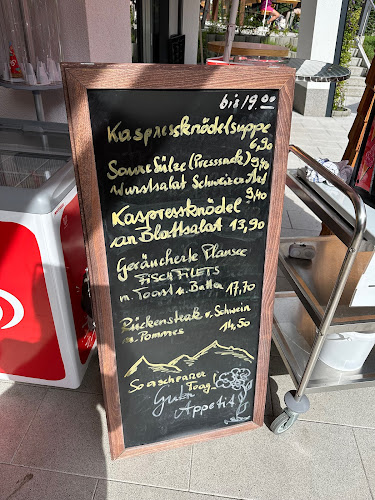 bis 19.00
Kaspressknödelsuppe
6,90
Saure Sülze (Presssack) 9,40
Wurstsalat Schweizer Art
9,40
Kaspressknödel
an Blattsalat 13,90
Geräucherte Plansee
FISCHFILETS
m. Toast u. Butter 17,70
Rückensteak v. Schwein
m. Pommes 14,50
Guten
Appetit